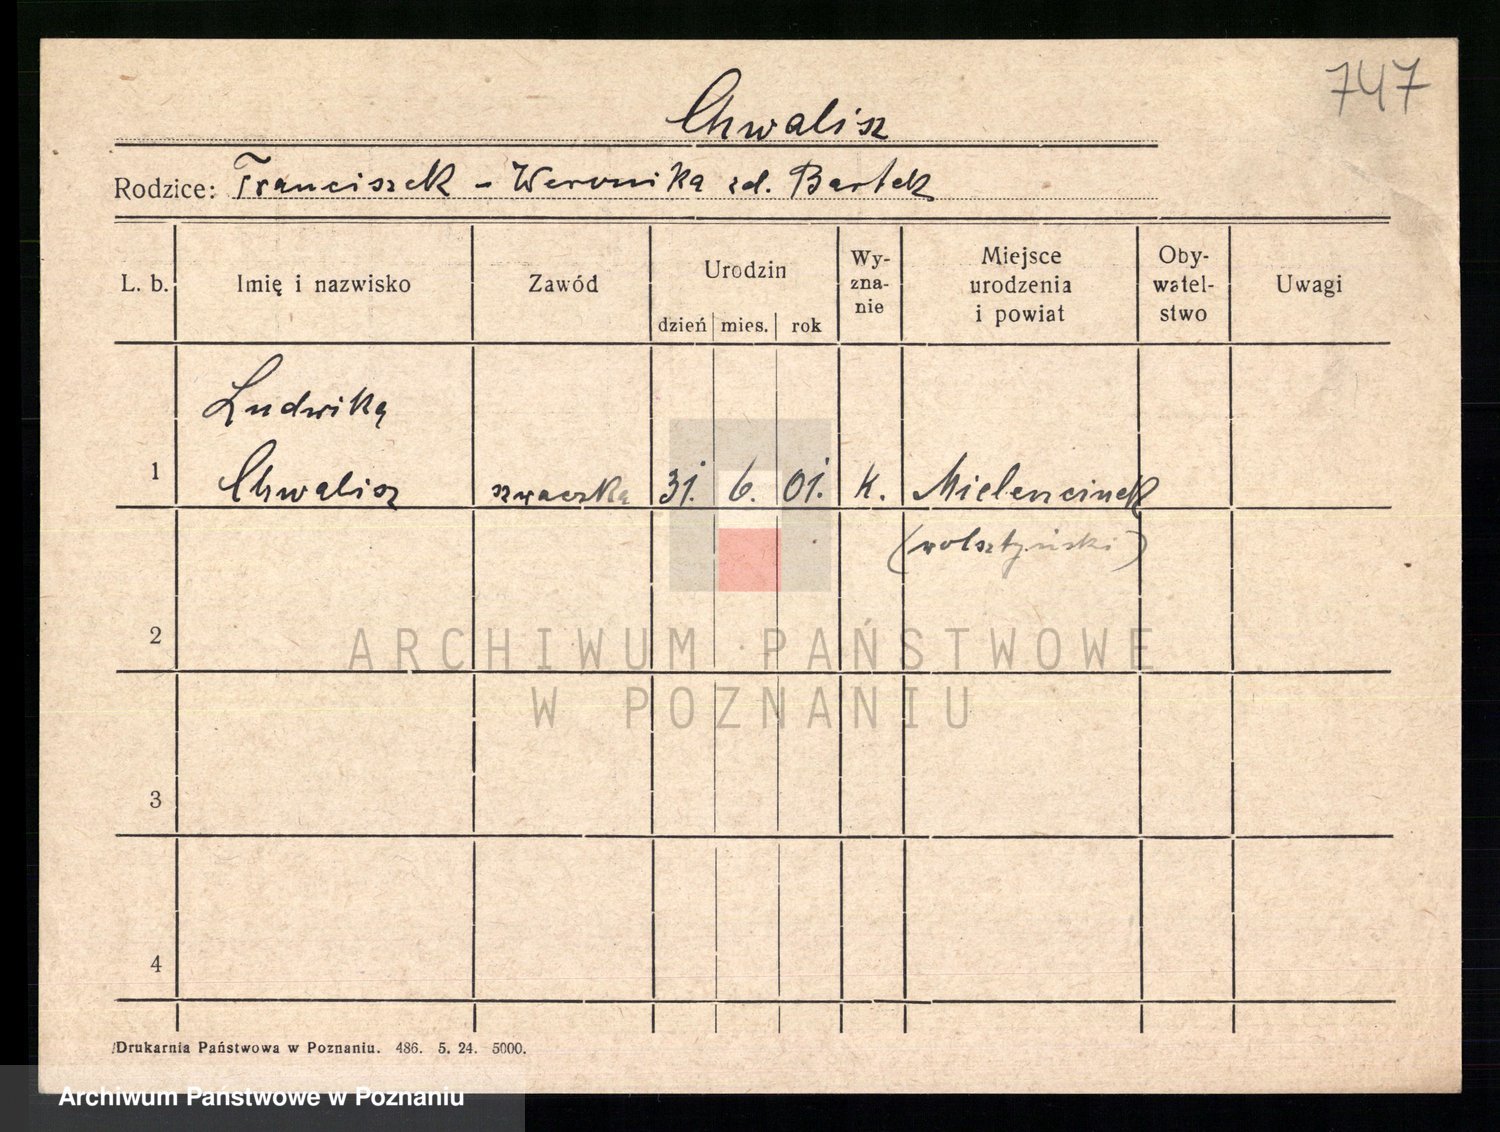 747
Chwalisz
Rodzice: Franciszek – Weronika zd. Bartek
L. b. Imię i nazwisko Zawód Urodzin dzień mies. rok Wy-zna-nie Miejsce urodzenia i powiat Oby-watel-stwo Uwagi
Ludwika
1 Chwalisz szwaczka 31. 6. 01. k.
(wolsztyński)
2
ARCHIWUM PAŃSTWOWE
W POZNANIU
3
4
Drukarnia Państwowa w Poznaniu. 486. 5. 24. 5000.
Archiwum Państwowe w Poznaniu